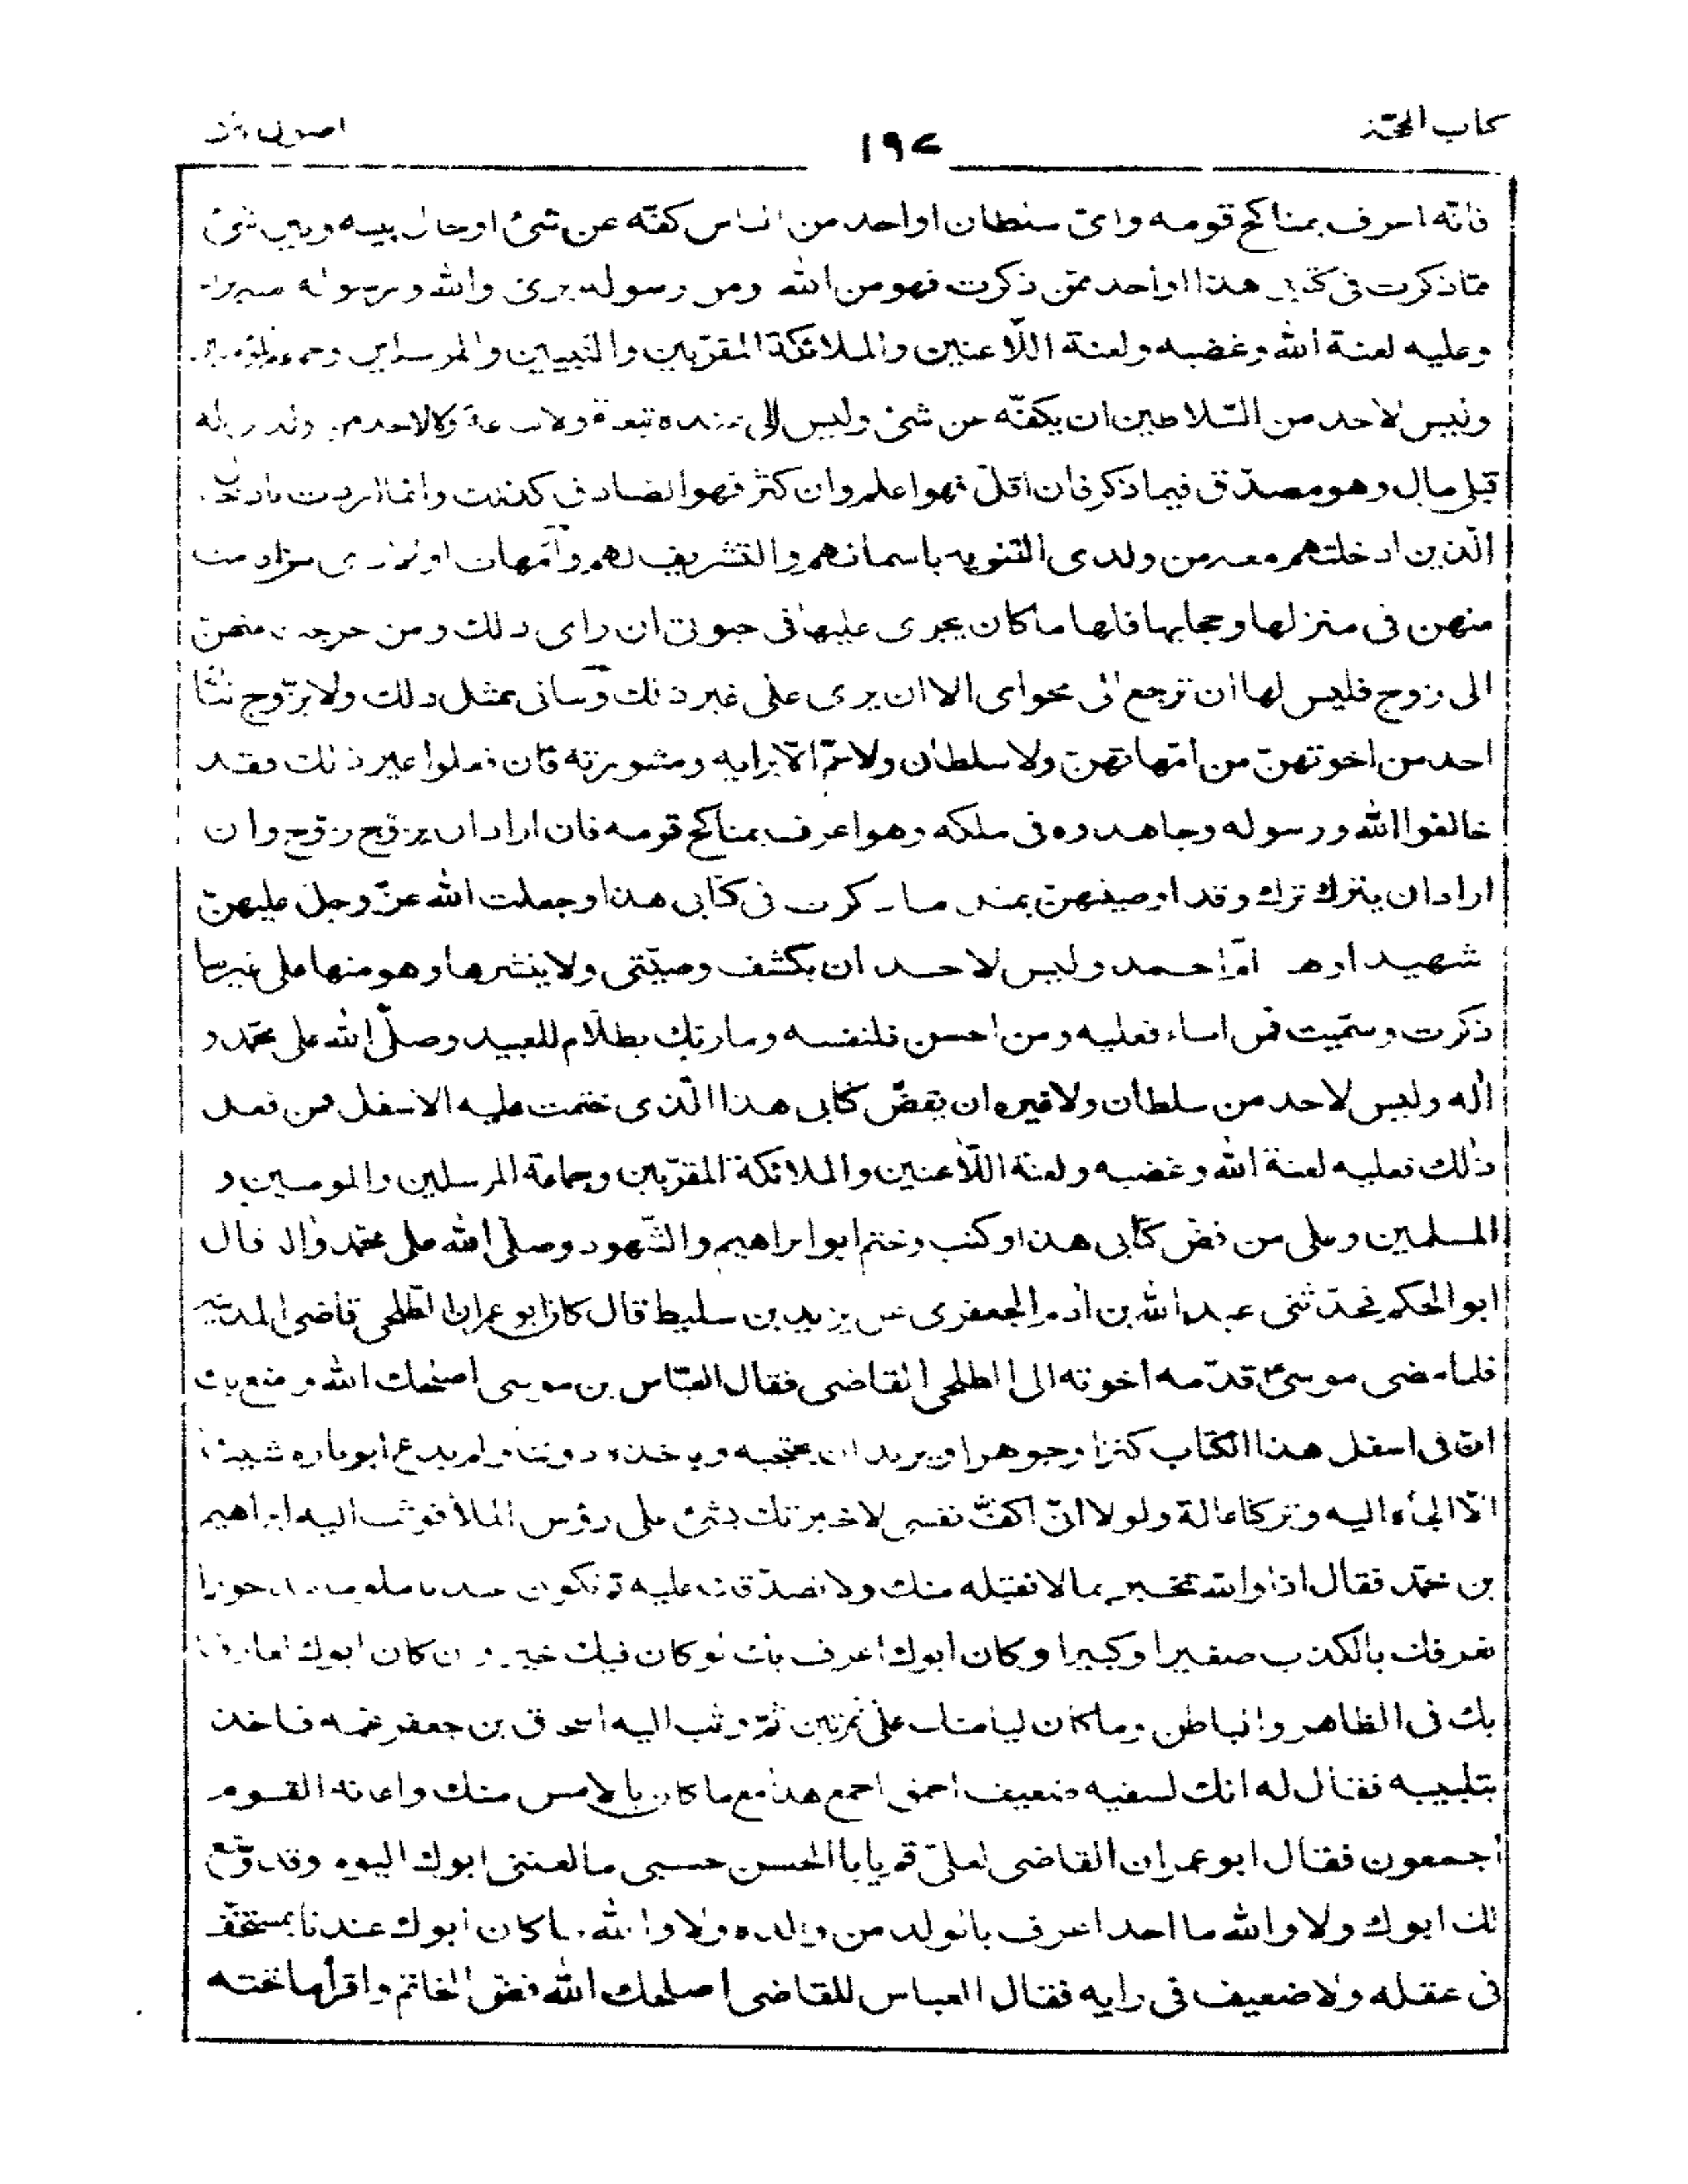 كتاب الحجّة
١٩٧
فانّه اعرف بمناكح قومه واىّ سلطان او احد من الناس كفّه عن شئ او حال بينه وبين شئ
ممّا ذكرت فى كتابى هذا او احد ممّن ذكرت فهو من الله ومن رسوله برئ والله ورسوله منه براء
وعليه لعنة الله وغضبه ولعنة اللّاعنين والملائكة المقرّبين والنّبيين والمرسلين وجماعة المؤمنين
وليس لاحد من السّلاطين ان يكفّه عن شئ وليس لى عنده تبعة ولا تباعة ولا لاحد من ولدى له
قبلى مال وهو مصدّق فيما ذكر فان اقلّ فهو اعلم وان كثر فهو الصادق كذلك وانّما اردت بادخال
الّذين ادخلتهم معه من ولدى التنويه باسمائهم والتشريف لهم وامّهات اولادى من اقامت
منهن فى منزلها وحجابها فلها ما كان يجرى عليها فى حيوتى ان راى ذلك ومن خرجت منهنّ
الى زوج فليس لها ان ترجع الى محواى الا ان يرى علىّ غير ذلك وبناتى بمثل ذلك ولا يزّوج بناتى
احد من اخوتهنّ من امّهاتهنّ ولا سلطان ولا عمّ الّا برايه ومشورته فان فعلوا غير ذلك فقد
خالفوا الله ورسوله وجاهدوه فى ملكه وهو اعرف بمناكح قومه فان اراد ان يزوّج زوّج وان
اراد ان يترك ترك وقد اوصيتهنّ بمثل ما ذكرت فى كتابى هذا وجعلت الله عزّ وجلّ عليهنّ
شهيدا وهو وامّ احمد وليس لاحد ان يكشف وصيّتى ولا ينشرها وهو منها على غير ما
ذكرت وسمّيت فمن اساء فعليه ومن احسن فلنفسه وما ربّك بظلّام للعبيد وصلّى الله على محمّد و
اله وليس لاحد من سلطان ولا غيره ان يفضّ كتابى هذا الّذى ختمت عليه الاسفل فمن فعل
ذلك فعليه لعنة الله وغضبه ولعنة اللّاعنين والملائكة المقرّبين وجماعة المرسلين والمومنين و
المسلمين وعلى من فضّ كتابى هذا وكتب وختم ابو ابراهيم والشّهود وصلّى الله على محمّد واله قال
ابو الحكم فحدّثنى عبد الله بن ادم الجعفرى عن يزيد بن سليط قال كان ابو عمران الطلحى قاضى المدينة
فلما مضى موسىؑ قدّمه اخوته الى الطلحى القاضى فقال العبّاس بن موسى اصلحك الله وامتع بك
انّ فى اسفل هذا الكتاب كنزا وجوهرا ويريد ان يحتجبه وياخذه دوننا ولم يدع ابونا ره شيئا
الّا الجأه اليه وتركنا عالة ولولا انّى اكفّ نفسى لاخبرتك بشئ على رؤس الملأ فوثب اليه ابراهيم
بن محمّد فقال اذا والله تخبر بما لا نقبله منك ولا نصدّقك عليه ثم تكون عندنا ملوما مدحورا
نعرفك بالكذب صغيرا وكبيرا وكان ابوك اعرف بك لو كان فيك خير وان كان ابوك لعارفا
بك فى الظاهر والباطن وما كان ليامنك على تمرتين ثمّ وثب اليه اسحق بن جعفر عمّه فاخذ
بتلبيبه فقال له انك لسفيه ضعيف احمق اجمع هذا مع ما كان بالامس منك واعانه القوم
اجمعون فقال ابو عمران القاضى لعلىّ قم يا ابا الحسن حسبى ما لعننى ابوك اليوم وقد وسّع
لك ابوك ولا والله ما احد اعرف بالولد من والده ولا والله ما كان ابوك عندنا بمستخفّ
فى عقله ولا ضعيف فى رايه فقال العباس للقاضى اصلحك الله فضّ الخاتم واقرأ ما تحته